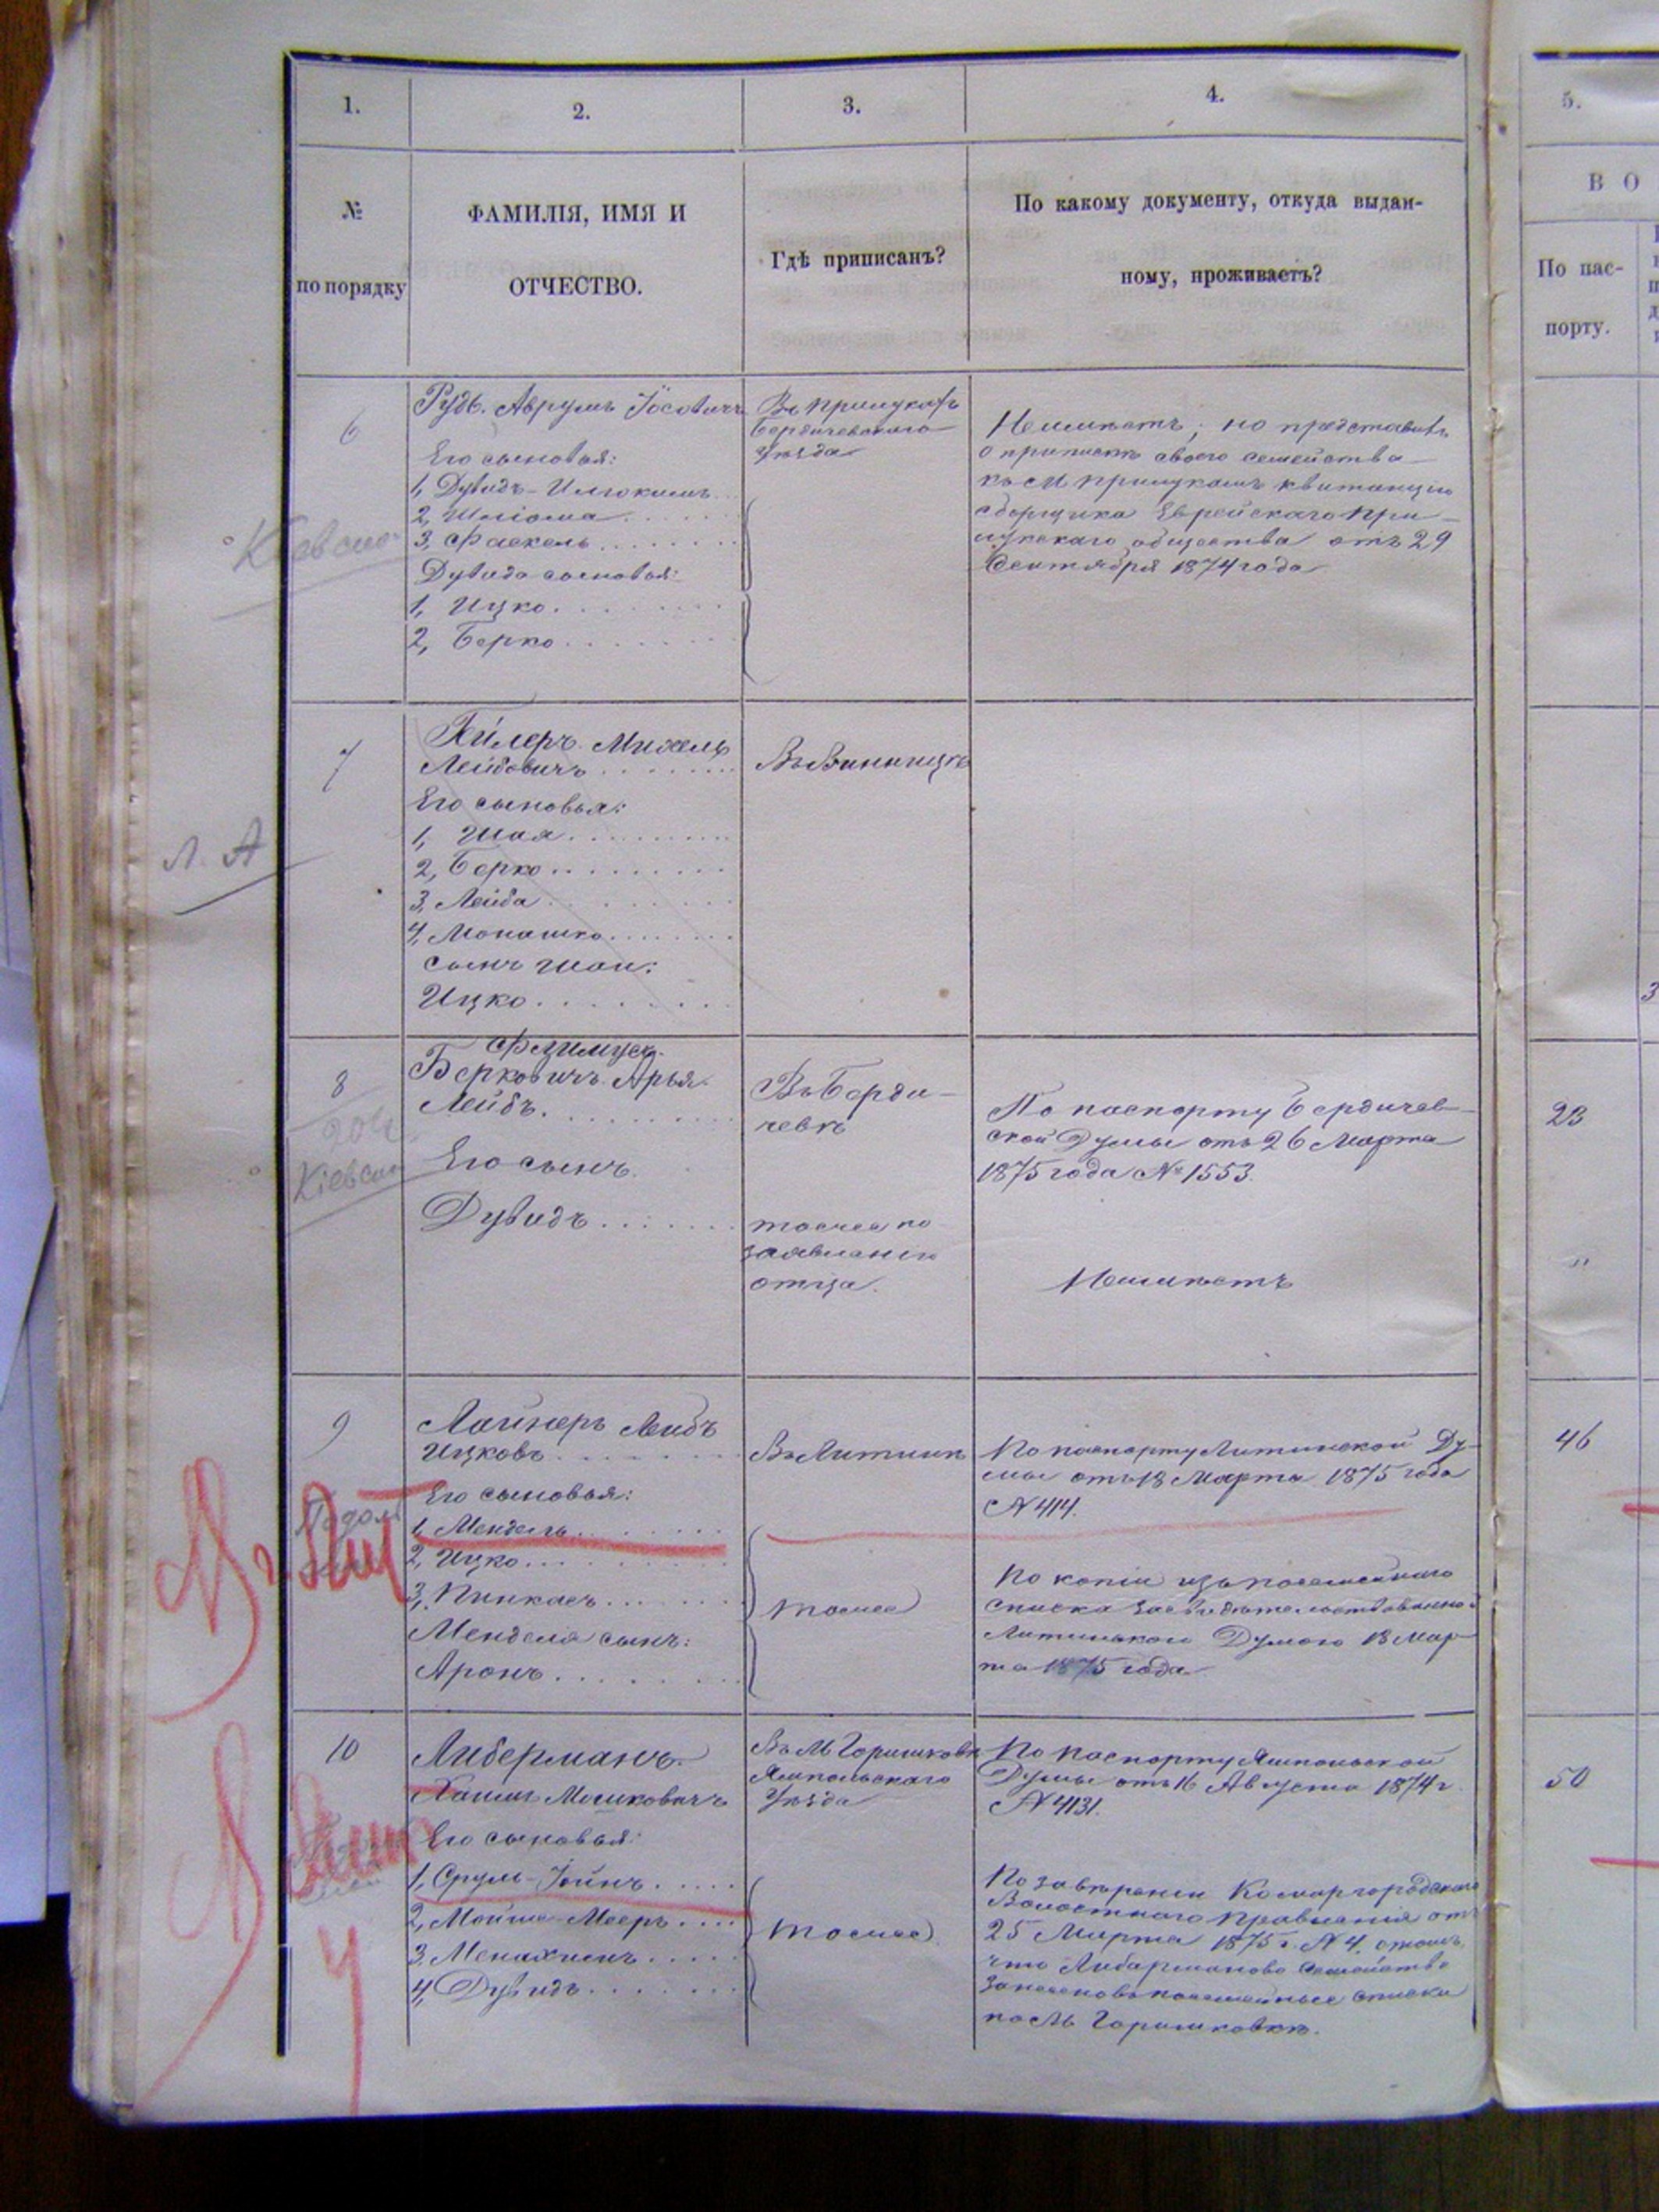 1.
2.
3.
4.
5.
№
по порядку
ФАМИЛІЯ, ИМЯ И
ОТЧЕСТВО.
Гдѣ приписанъ?
По какому документу, откуда выдан-
ному, проживаетъ?
В О
По пас-
порту.
6
Рудь. Аврумъ Іосовичъ
Его сыновья:
1, Дувидъ-
2, Шліома
3,
Дувида сыновья:
1, Ицко
2, Берко
Въ Прилукахъ
Бердичевскаго
Уѣзда
Неимѣетъ, но представилъ
о припискѣ своего семейства
къ М Прилукамъ квитанцію
сборщика Еврейскаго При-
лукскаго общества отъ 29
Сентября 1874 года
Кіевск
7
Л. А
Михель
Лейбовичъ
Его сыновья:
1, Шая
2, Берко
3, Лейба
4, Монашко
сынъ Шаи:
Ицко
Въ Винницѣ
3
8
Кіевск
Берковичъ Арья
Лейбъ
Его сынъ
Дувидъ
Въ Верди-
чевѣ
тоже по
заявленію
отца.
По паспорту Бердичев-
ской Думы отъ 26 Марта
1875 года № 1553.
Неимѣетъ
23
"
9
Лайнеръ Лейбъ
Ицковъ
Его сыновья:
1, Мендель
2, Ицко
3, Пинкасъ
Менделя сынъ:
Аронъ
Въ Литинѣ
тоже
По паспорту Литинской Ду-
мы отъ 13 Марта 1875 года
№ 414.
По копіи изъ посемейнаго
списка засвидѣтельствованной
Литинскою Думою 13 Мар-
та 1875 года
46
10
Либерманъ.
Хаимъ Мошковичъ
Его сыновья:
1, Сруль-Іойнъ
2, Мойше-Мееръ
3, Менахимъ
4, Дувидъ
Въ М Горишковкѣ
Ямпольскаго
Уѣзда
тоже
По паспорту Ямпольской
Думы отъ 16 Августа 1874 г.
№ 4131.
По завѣренію Комаргородскаго
Волостнаго Правленія отъ
25 Марта 1875 г. № 4, о томъ,
что Либерманово семейство
занесено въ посемейные списки
по М Горишковкѣ.
50